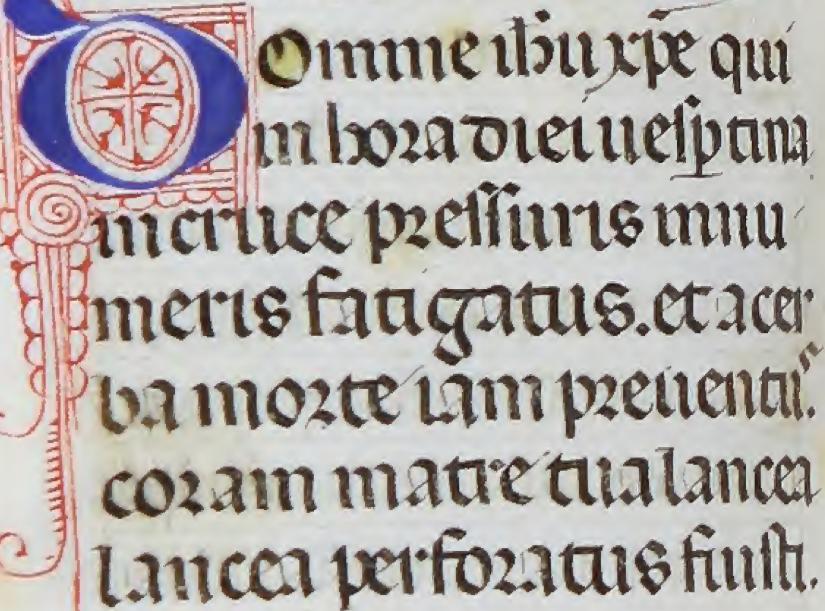 DOmine ihu xp̄e qui
in hora diei uesp̱tina
in cruce pressuris innu
meris fatigatus. et acer
ba morte iam preuentus.
coram matre tua lancea
lancea perforatus fuisti.